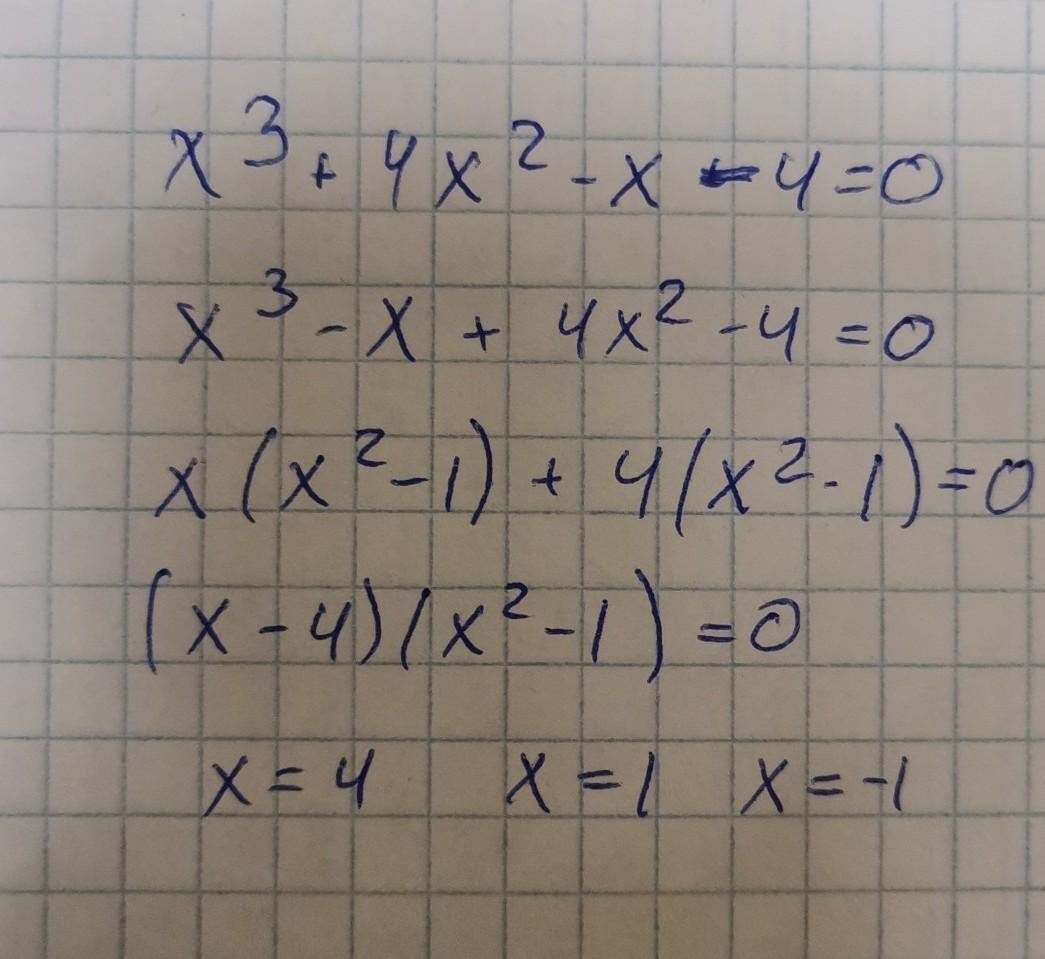 x³ + 4x² - x - 4 = 0
x³ - x + 4x² - 4 = 0
x(x² - 1) + 4(x² - 1) = 0
(x - 4)(x² - 1) = 0
x = 4 x = 1 x = -1